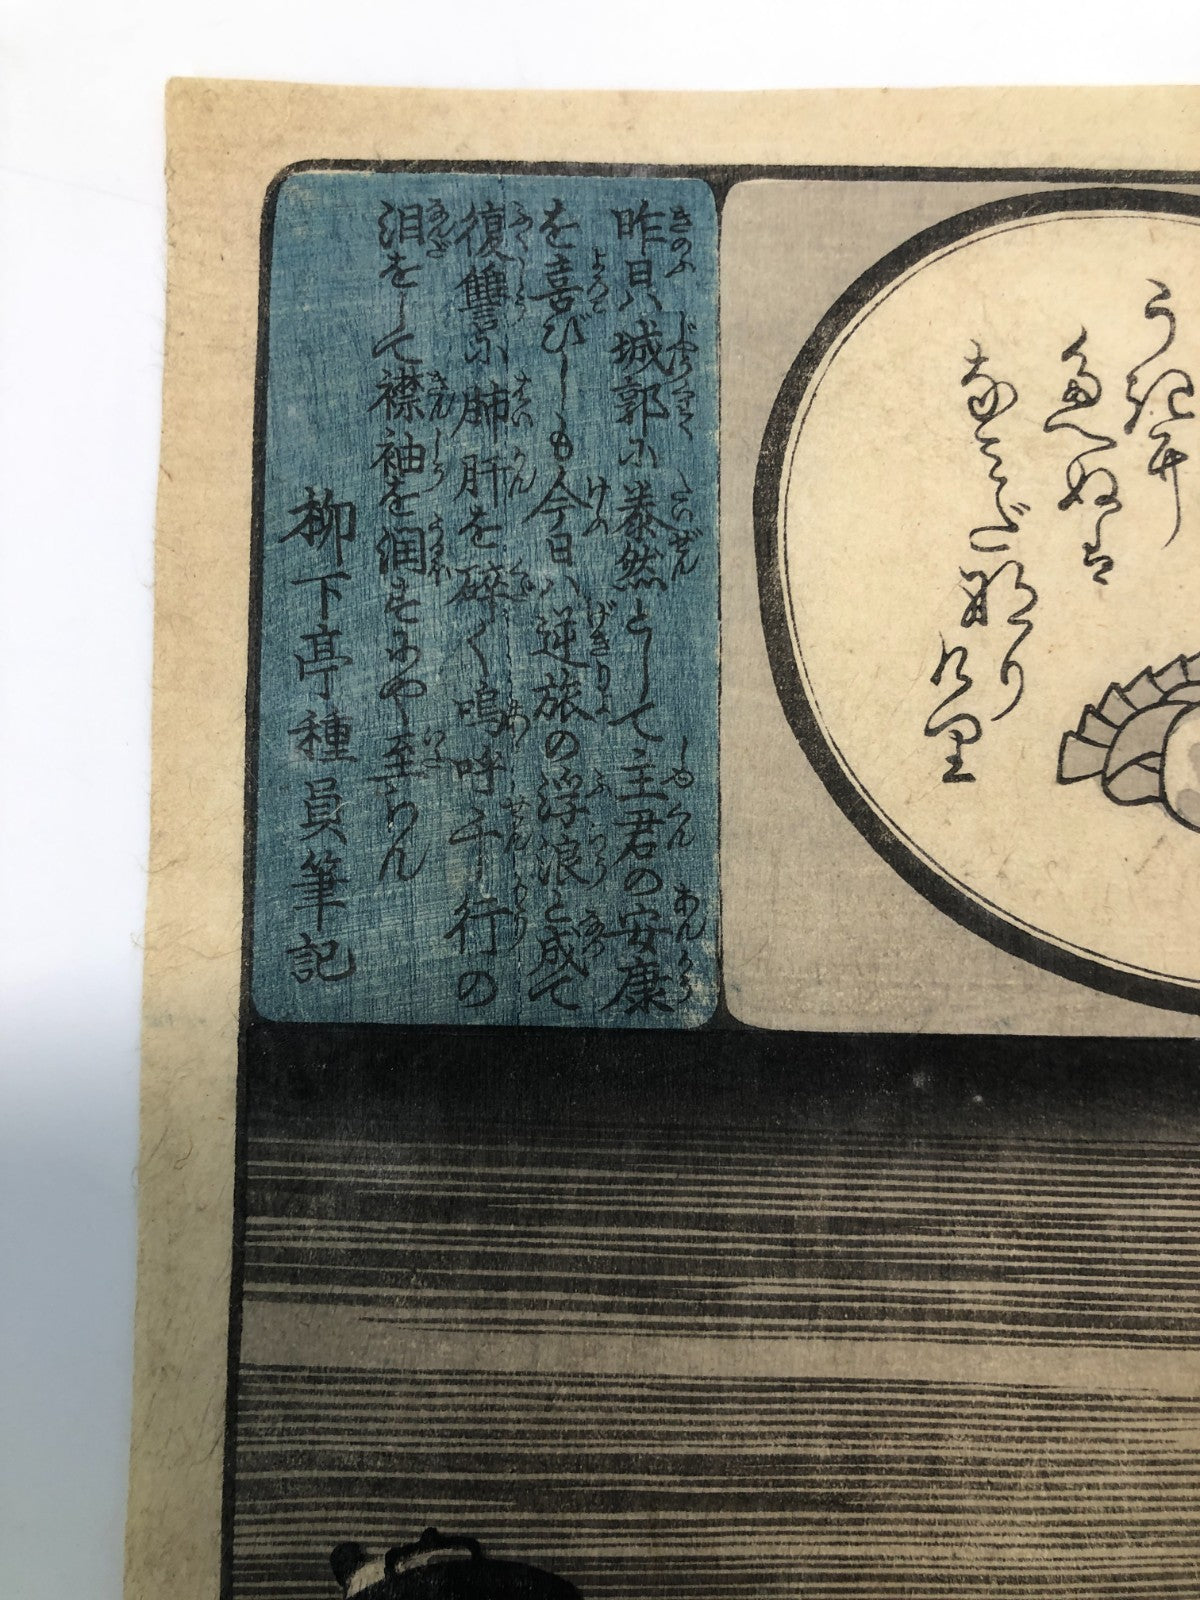 うきに
たへぬは
なみだなり
けり
昨日ハ城郭に泰然として主君の安康
を喜びしも今日ハ逆旅の浮浪と成て
復讐に肺肝を碎く嗚呼千行の
泪をして襟袖を潤すにや至らん
柳下亭種員筆記